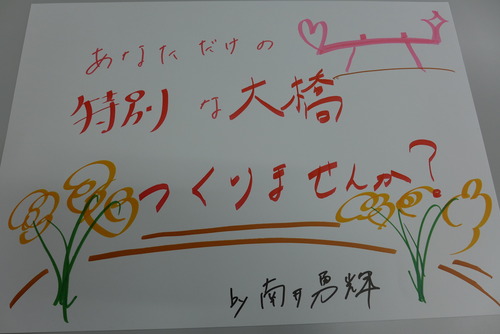 あなただけの
特別な大橋
つくりませんか?
by 南出勇輝